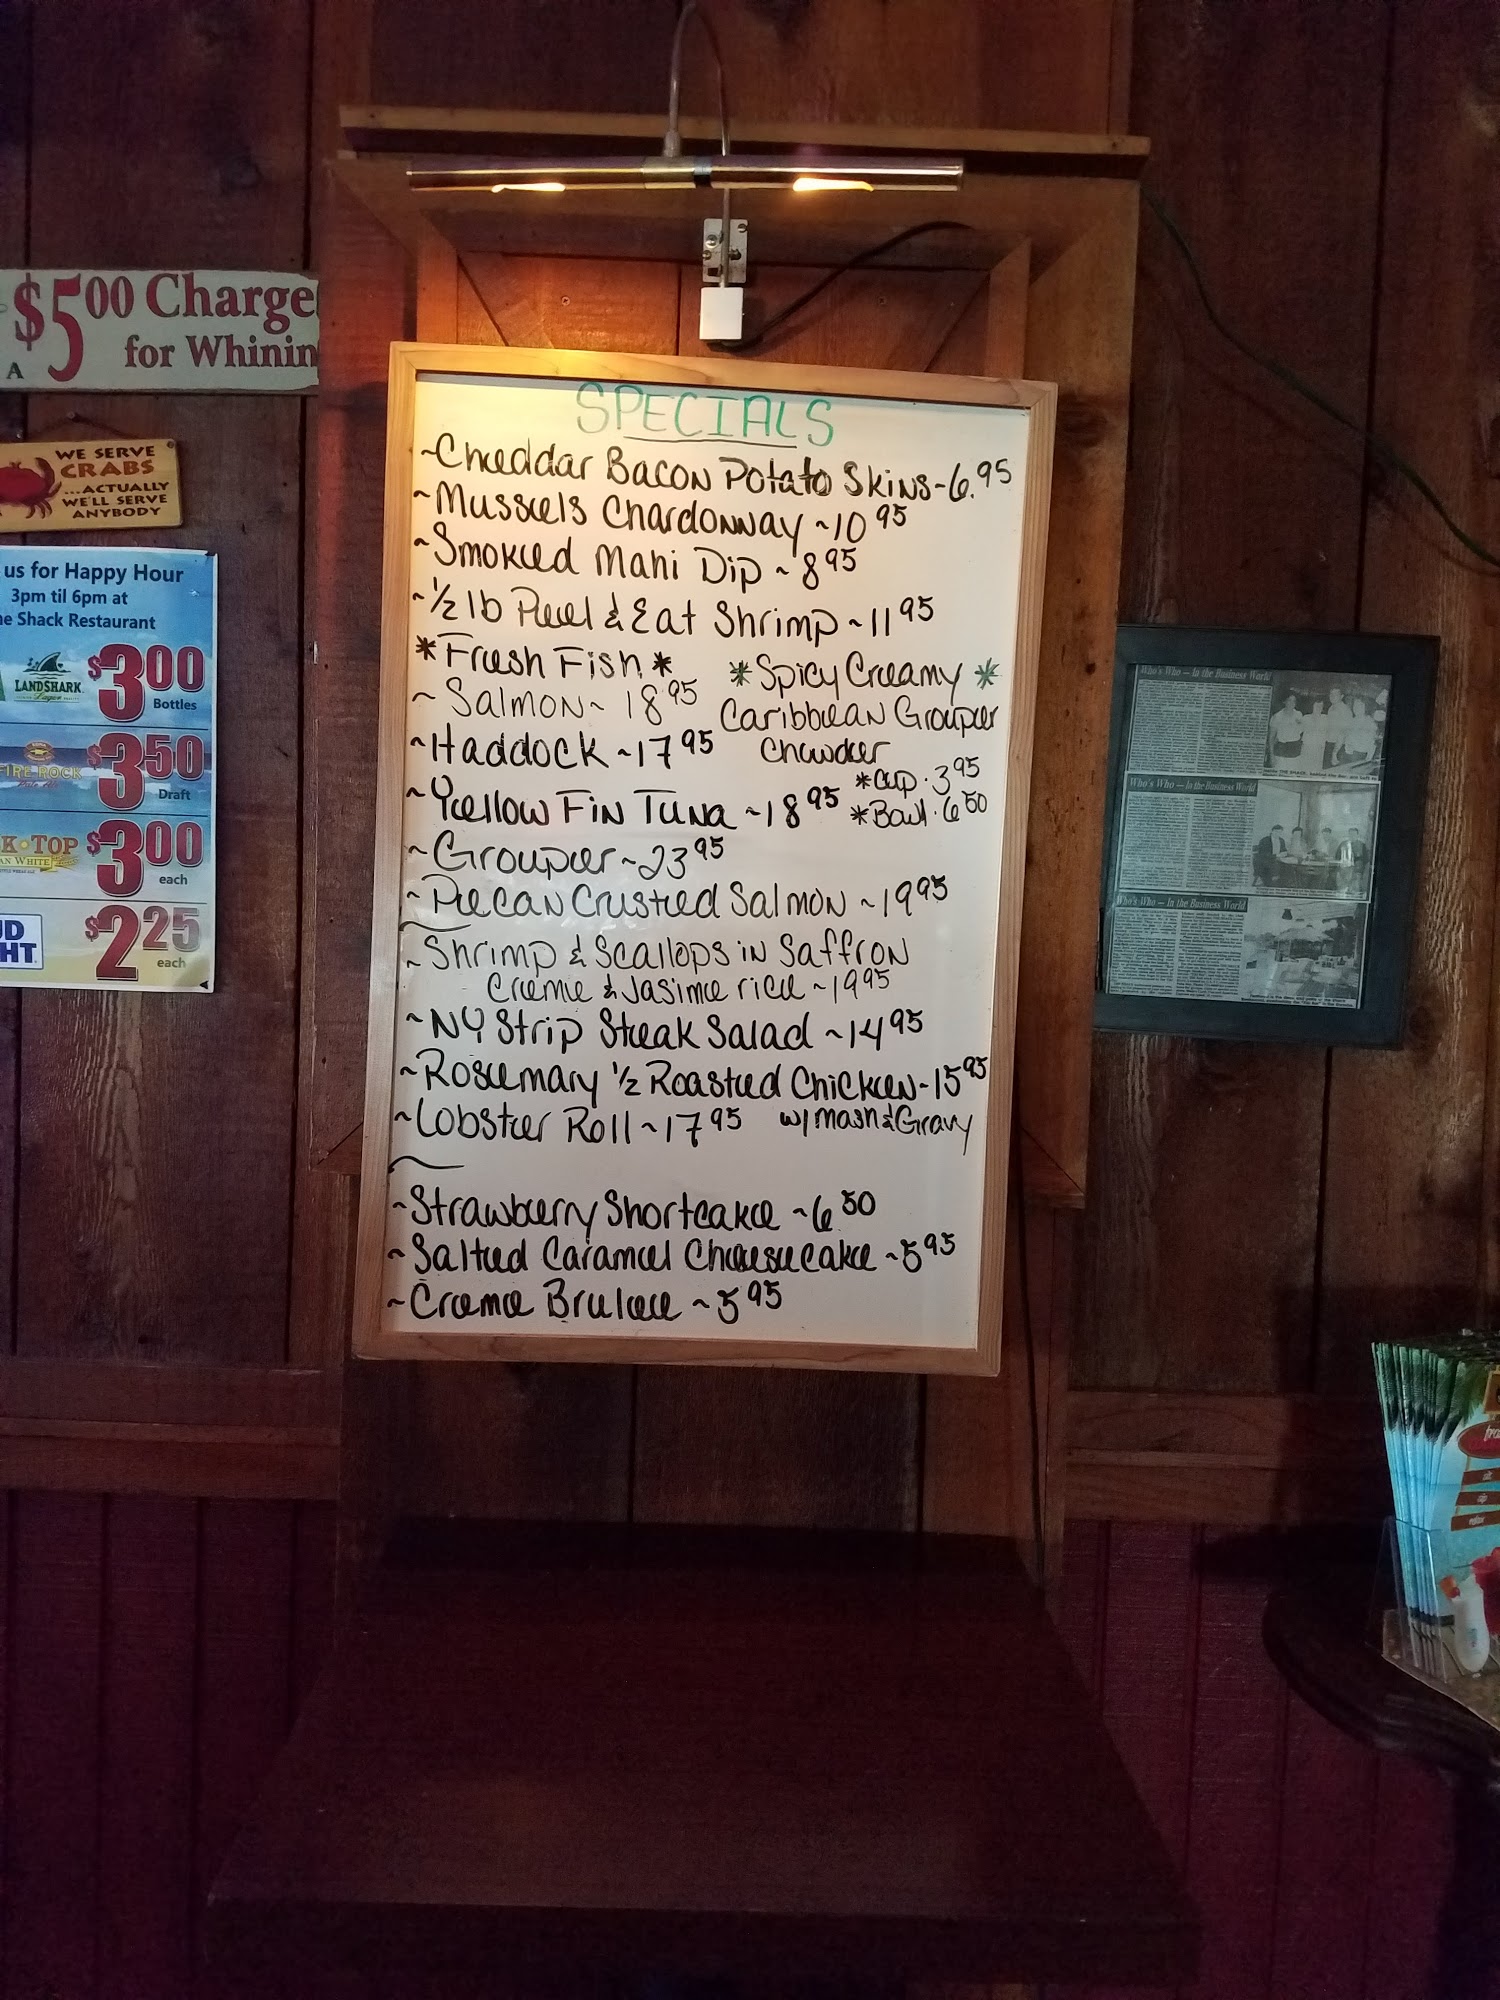 $5.00 Charge
for
A
WE SERVE
CRABS
...ACTUALLY
WE'LL SERVE
ANYBODY
us for Happy Hour
3pm til 6pm at
Shack Restaurant
LANDSHARK
Lager
$3.00
Bottles
FIRE ROCK
Pale Ale
$3.50
Draft
TOP
WHITE
$3.00
each
$2.25
each
SPECIALS
~Cheddar Bacon Potato Skins-6.95
~Mussels Chardonnay ~10 95
~Smoked Mahi Dip ~ 8 95
~½ lb Peel & Eat Shrimp ~11 95
*Fresh Fish*
~Salmon~ 18 95
~Haddock ~17 95
~Yellow Fin Tuna ~18 95
*Spicy Creamy*
Caribbean Grouper
Chowder
*Cup. 3 95
*Bowl. 6 50
~Grouper~23 95
~Pecan Crusted Salmon ~19 95
~Shrimp & Scallops in Saffron
Creme & Jasime rice ~19 95
~NY Strip Steak Salad ~14 95
~Rosemary ½ Roasted Chicken-15 95
w/ Mash & Gravy
~Lobster Roll ~17 95
~Strawberry Shortcake ~6 50
~Salted Caramel Cheesecake ~5 95
~Creme Brulee ~5 95
Who's Who — In the Business World
Who's Who — In the Business World
Who's Who — In the Business World